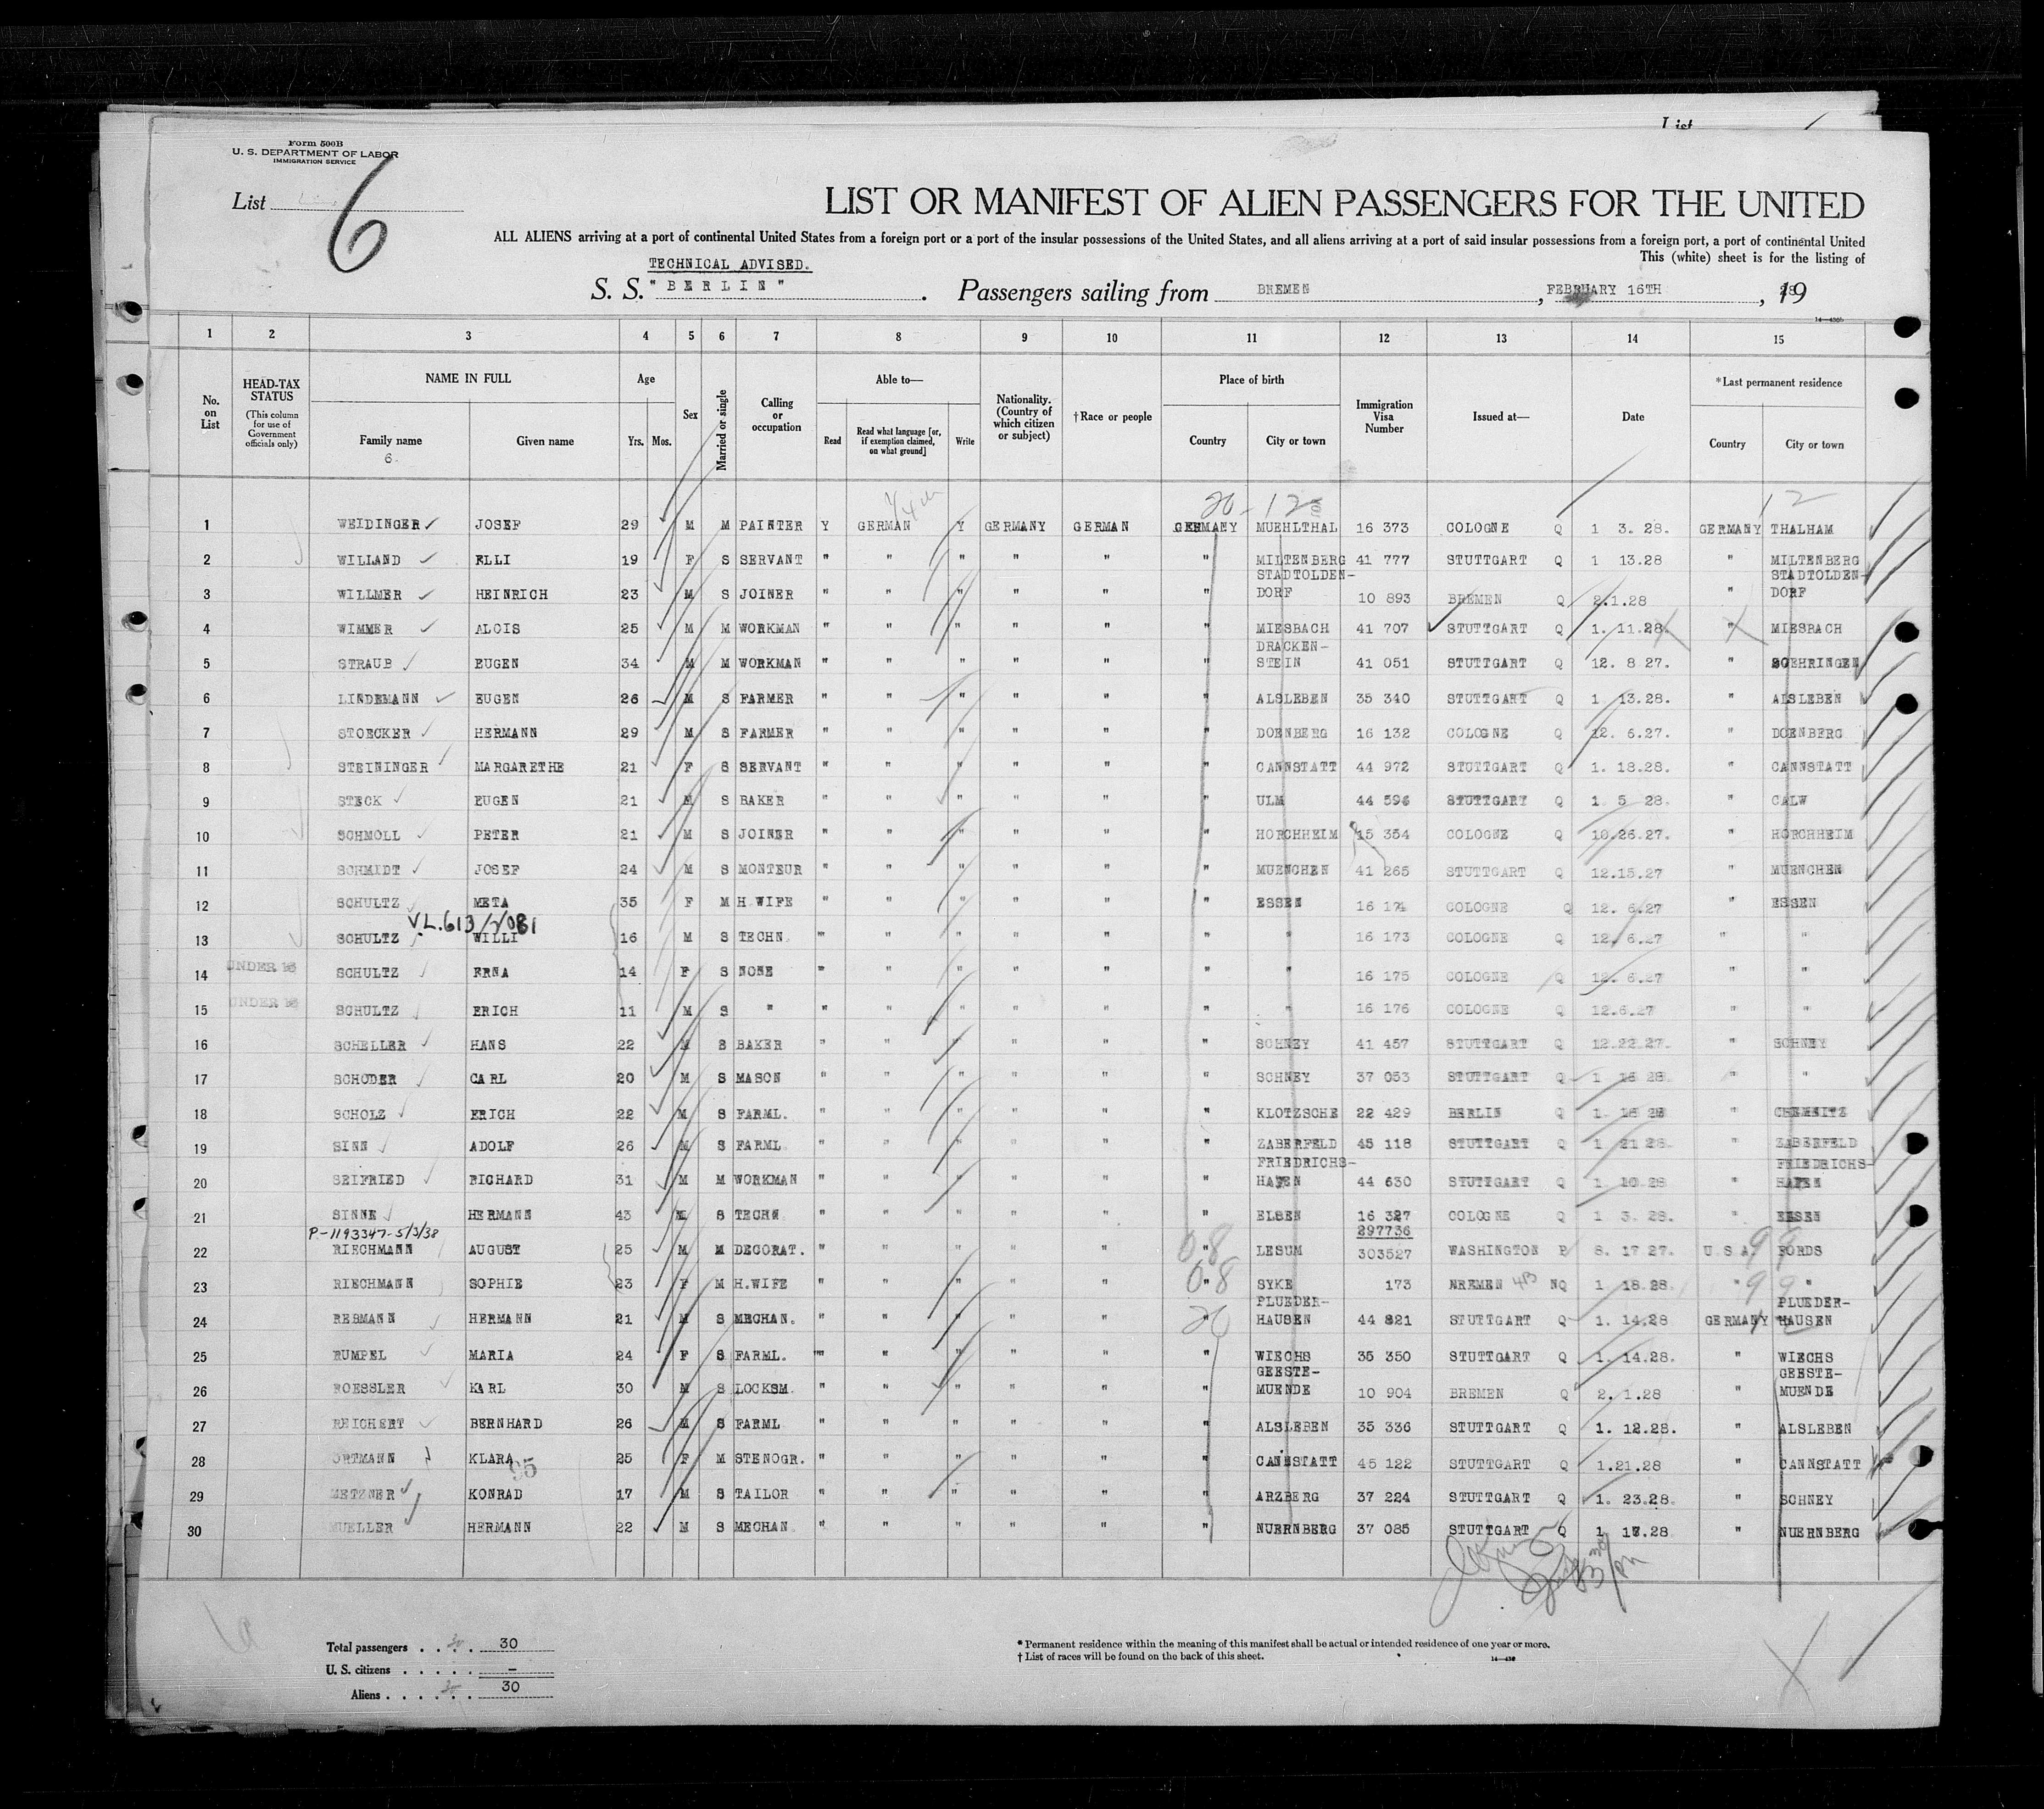 List
Form 500B
U. S. DEPARTMENT OF LABOR
IMMIGRATION SERVICE
List 6
LIST OR MANIFEST OF ALIEN PASSENGERS FOR THE UNITED
ALL ALIENS arriving at a port of continental United States from a foreign port or a port of the insular possessions of the United States, and all aliens arriving at a port of said insular possessions from a foreign port, a port of continental United
This (white) sheet is for the listing of
TECHNICAL ADVISED.
S. S. "BERLIN". Passengers sailing from BREMEN, FEBRUARY 16TH, 1928
1 2 3 4 5 6 7 8 9 10 11 12 13 14 15
No. on List
HEAD-TAX STATUS
(This column for use of Government officials only)
NAME IN FULL
Family name
6.
Given name
Age
Yrs. Mos.
Sex
Married or single
Calling or occupation
Able to—
Read
Read what language [or, if exemption claimed, on what ground]
Write
Nationality. (Country of which citizen or subject)
†Race or people
Place of birth
Country
City or town
Immigration Visa Number
Issued at—
Date
*Last permanent residence
Country
City or town
1 WEIDINGER JOSEF 29 M M PAINTER Y GERMAN Y GERMANY GERMAN GERMANY MUEHLTHAL 16 373 COLOGNE Q 1 3. 28. GERMANY THALHAM
2 WILLAND ELLI 19 F S SERVANT " " " " " " MILTENBERG 41 777 STUTTGART Q 1 13.28 " MILTENBERG
3 WILLMER HEINRICH 23 M S JOINER " " " " " " STADTOLDEN-DORF 10 893 BREMEN Q 2.1.28 " STADTOLDEN-DORF
4 WIMMER ALOIS 25 M M WORKMAN " " " " " " MIESBACH 41 707 STUTTGART Q 1. 11.28. " MIESBACH
5 STRAUB EUGEN 34 M M WORKMAN " " " " " " DRACKEN-STEIN 41 051 STUTTGART Q 12. 8 27. " BOEHRINGEN
6 LINDEMANN EUGEN 26 M S FARMER " " " " " " ALSLEBEN 35 340 STUTTGART Q 1 13.28. " ALSLEBEN
7 STOECKER HERMANN 29 M S FARMER " " " " " " DOENBERG 16 132 COLOGNE Q 12. 6.27. " DOENBERG
8 STEININGER MARGARETHE 21 F S SERVANT " " " " " " CANNSTATT 44 972 STUTTGART Q 1. 18.28. " CANNSTATT
9 STECK EUGEN 21 M S BAKER " " " " " " ULM 44 596 STUTTGART Q 1 5 28. " CALW
10 SCHMOLL PETER 21 M S JOINER " " " " " " HORCHHEIM 15 354 COLOGNE Q 10.26.27. " HORCHHEIM
11 SCHMIDT JOSEF 24 M S MONTEUR " " " " " " MUENCHEN 41 265 STUTTGART Q 12.15.27 " MUENCHEN
12 SCHULTZ META 35 F M H WIFE " " " " " " ESSEN 16 174 COLOGNE Q 12. 6.27 " ESSEN
13 SCHULTZ WILLI 16 M S TECHN. " " " " " " " 16 173 COLOGNE Q 12. 6.27 " "
14 UNDER 16 SCHULTZ ERNA 14 F S NONE " " " " " " " 16 175 COLOGNE Q 12. 6.27 " "
15 UNDER 16 SCHULTZ ERICH 11 M S " " " " " " " " 16 176 COLOGNE Q 12.6.27 " "
16 SCHELLER HANS 22 M S BAKER " " " " " " SCHNEY 41 457 STUTTGART Q 12.22.27. " SCHNEY
17 SCHODER CARL 20 M S MASON " " " " " " SCHNEY 37 053 STUTTGART Q 1 16 28. " "
18 SCHOLZ ERICH 22 M S FARML. " " " " " " KLOTZSCHE 22 429 BERLIN Q 1. 16 28 " CHEMNITZ
19 SINN ADOLF 26 M S FARML. " " " " " " ZABERFELD 45 118 STUTTGART Q 1 21 28. " ZABERFELD
20 SEIFRIED RICHARD 31 M M WORKMAN " " " " " " FRIEDRICHS-HAFEN 44 630 STUTTGART Q 1 10 28 " FRIEDRICHS-HAFEN
21 SINNE HERMANN 43 M S TECHN " " " " " " ELSEN 16 327 COLOGNE Q 1 3. 28. " ESSEN
P-1193347-5/3/38
297736
22 RIECHMANN AUGUST 25 M M DECORAT. " " " " " " LESUM 303527 WASHINGTON P 8. 17 27. U.S.A. FORDS
23 RIECHMANN SOPHIE 23 F M H.WIFE " " " " " " SYKE 173 NREMEN NQ 1 18.28. " "
24 REBMANN HERMANN 21 M S MECHAN. " " " " " " PLUEDER-HAUSEN 44 821 STUTTGART Q 1. 14.28 GERMANY PLUEDER-HAUSEN
25 RUMPEL MARIA 24 F S FARML. " " " " " " WIECHS 35 350 STUTTGART Q 1. 14.28. " WIECHS
26 ROESSLER KARL 30 M S LOCKSM. " " " " " " GEESTE-MUENDE 10 904 BREMEN Q 2. 1.28 " GEESTE-MUENDE
27 REICHERT BERNHARD 26 M S FARML " " " " " " ALSLEBEN 35 336 STUTTGART Q 1. 12.28. " ALSLEBEN
28 ORTMANN KLARA 25 F M STENOGR. " " " " " " CANNSTATT 45 122 STUTTGART Q 1.21.28 " CANNSTATT
29 METZNER KONRAD 17 M S TAILOR " " " " " " ARZBERG 37 224 STUTTGART Q 1. 23.28. " SCHNEY
30 MUELLER HERMANN 22 M S MECHAN. " " " " " " NUERNBERG 37 085 STUTTGART Q 1 17.28 " NUERNBERG
Total passengers . . . . 30
U. S. citizens . . . . . –
Aliens . . . . . . 30
* Permanent residence within the meaning of this manifest shall be actual or intended residence of one year or more.
† List of races will be found on the back of this sheet.